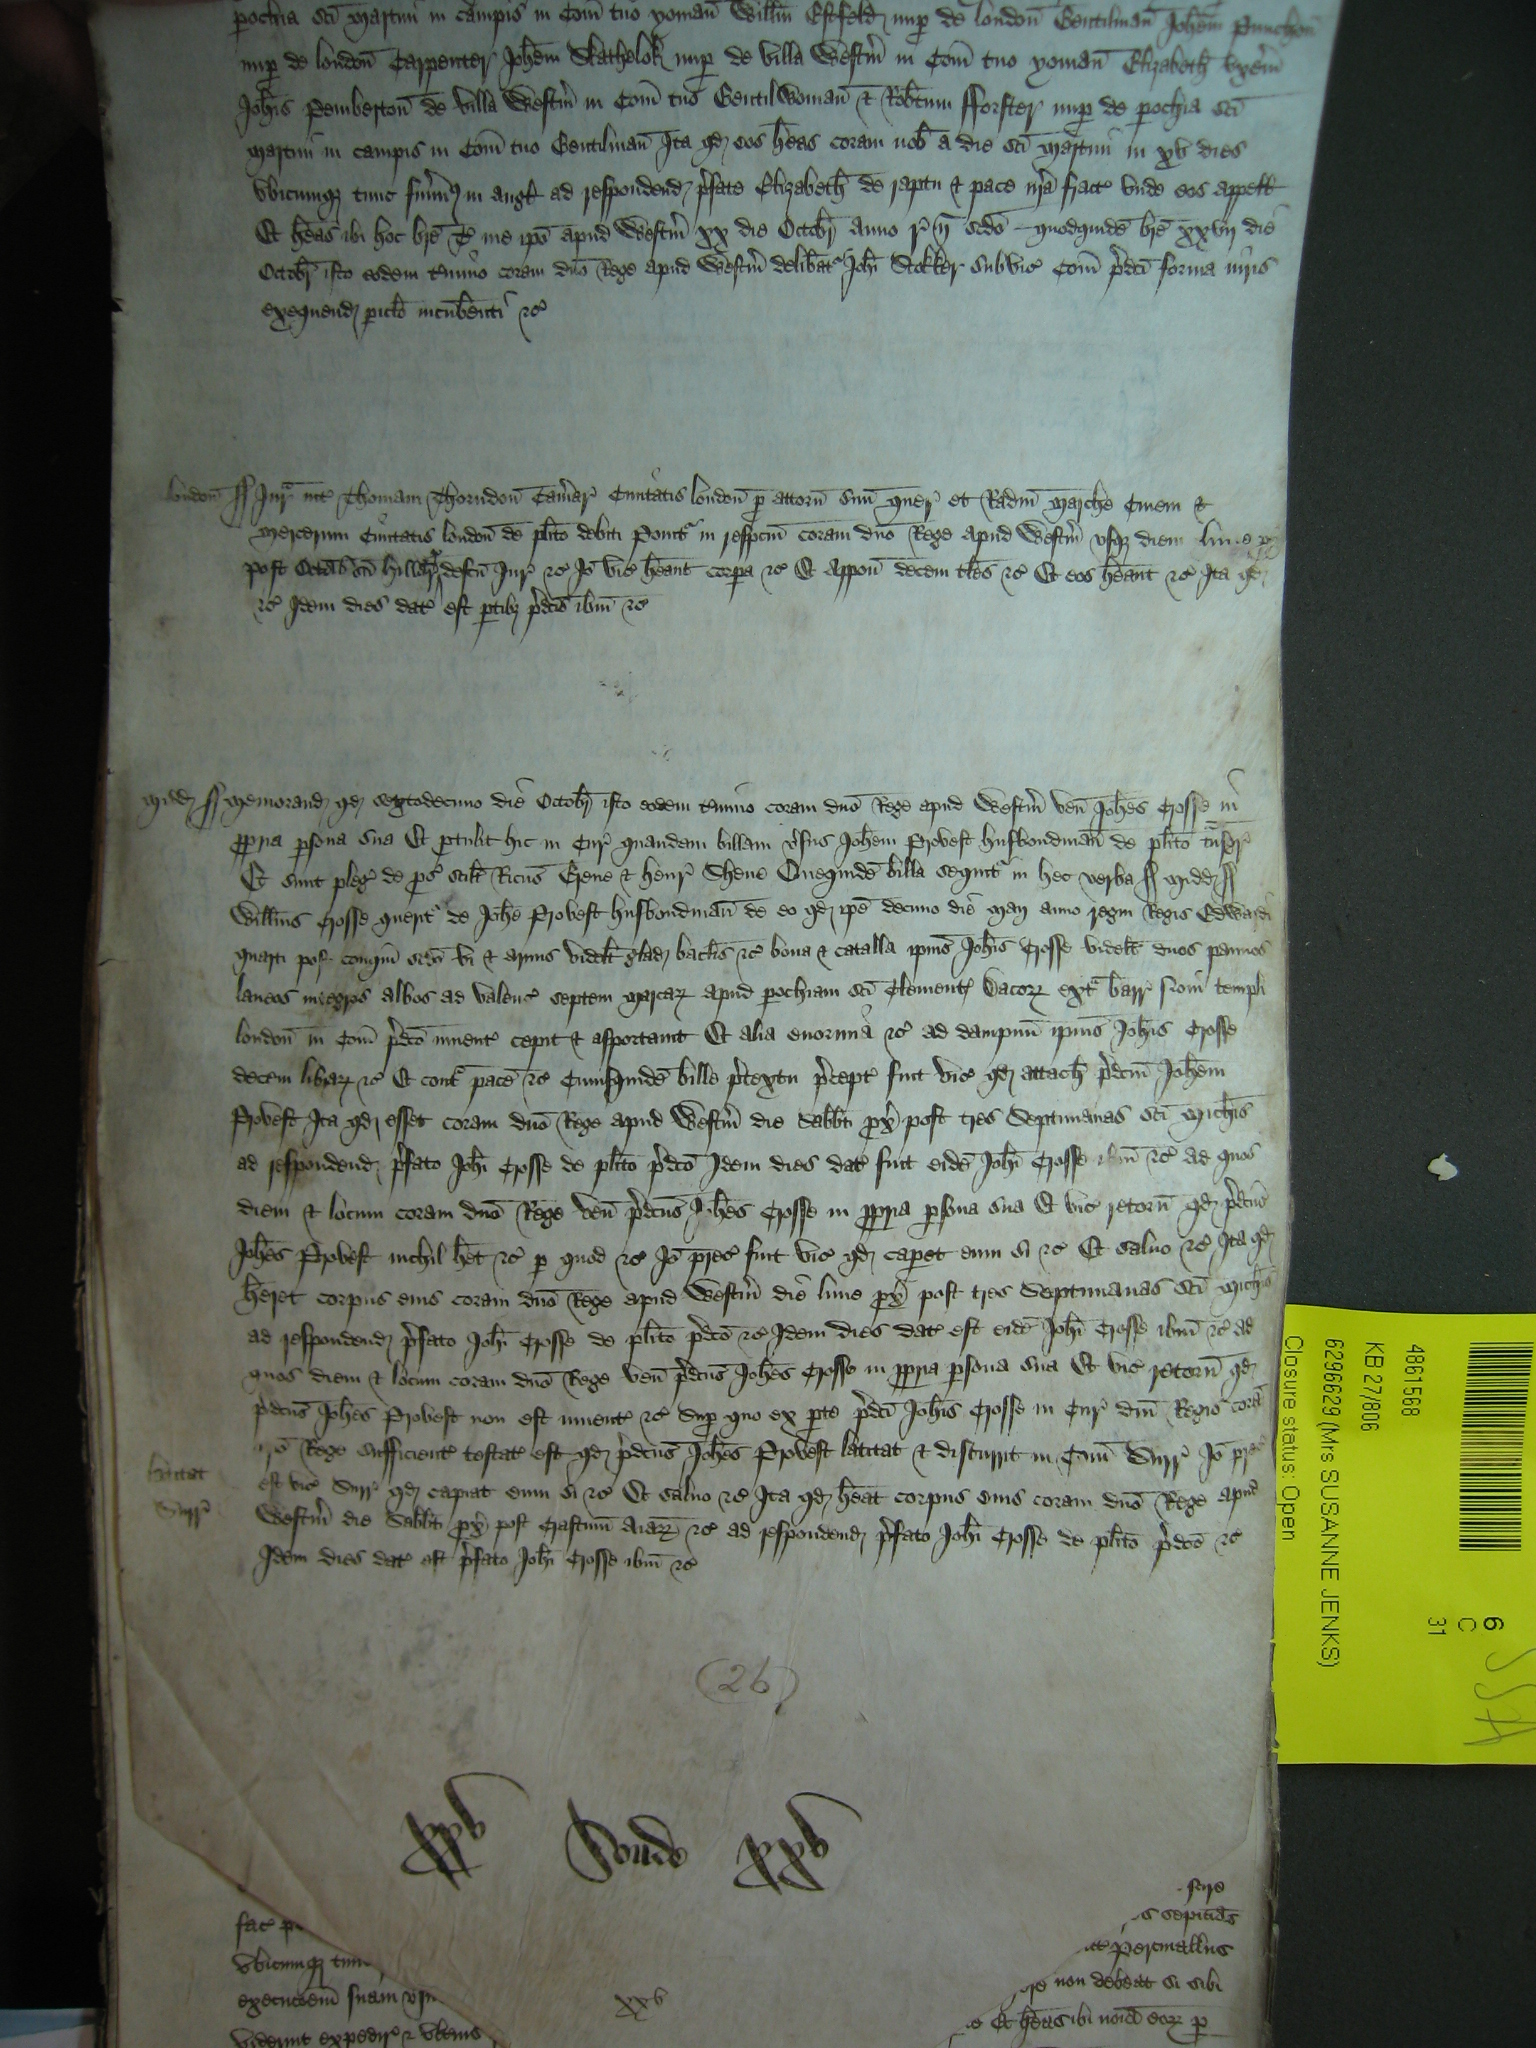 pochia sci Martini in campis in Com tuo yoman Willm Estfeld nup de london Gentilman Johem Punchon
nup de london Carpenter Johem Rathelok nup de villa Westm in Com tuo yoman Elizabeth uxem
Johis Pemberton de villa Westm in Com tuo Gentilwoman & Robtum fforster nup de pochia sci
Martini in campis in Com tuo Gentilman Ita qd eos heas coram nob a die sci Martini in xv dies
vbicumq tunc fuim in Angl ad respondend pfate Elizabeth de raptu & pace nra fract vnde eos appell
Et heas ibi hoc bre T me ipo apud Westm xx die Octobr anno r n scdo quodquide bre xxvij die
Octobr isto eodem tmino coram dno Rege apud Westm delibat Johi Stokker subvic Com pdci forma iuris
exequend piclo incubenti &c
london ss Jur int Thomam Thorndon Camar Ciuitatis london p attorn suu quer et Radm Marche Ciuem &
Mercerum Ciuitatis london de plito debiti Ponit in respcm coram dno Rege apud Westm vsq diem lune px
post Octab sci hillar p defcu Jur &c Jo vic heant corpa &c Et Appon decem tles &c Et eos heant &c Ita qd
&c Idem dies dat est ptibz pdcis ibm &c
Midd ss Memorand qd sextodecimo die Octobr isto eodem tmino coram dno Rege apud Westm ven Johes Crosse in
ppria psona sua Et ptulit hic in Cur quandam billam vsus Johem Provest husbondman de plito tnsgr
Et sunt pleg de ps scilt Ricus Grene & Henr Shene Quequide billa sequit in hec verba ss Midd ss
Willms Crosse querit de Johe Provest husbondman de eo qd ipe decimo die Maij anno regni Regis Edwardi
quarti post conqm scdo vi & armis videlt glad baclis &c bona & catalla ipius Johis Crosse videlt duos pannos
laneos integros albos ad valenc septem marcar apud pochiam sci Clement Dacor extr barr Noui templi
london in Com pdco invent cepit & asportauit Et alia enormia &c ad dampnu ipius Johis Crosse
decem librar &c Et cont pace &c Cuiusquide bille ptextu pcept fuit vic qd attach pdcm Johem
Provest Ita qd esset coram dno Rege apud Westm die Sabbti px post tres Septimanas sci Michis
ad respondend pfato Johi Crosse de plito pdco Idem dies dat fuit eide Johi Crosse ibm &c Ad quos
diem & locum coram dno Rege ven pdcus Johes Crosse in ppria psona sua Et vic retorn qd pdcus
Johes Provest nichil het &c p quod &c Jo prec fuit vic qd capet eum si &c Et saluo &c Ita qd
heret corpus eius coram dno Rege apud Westm die lune px post tres Septimanas sci Michis
ad respondend pfato Johi Crosse de plito pdco &c Idem dies dat est eide Johi Crosse ibm &c ad
quos diem & locum coram dno Rege ven pdcus Johes Crosse in ppria psona sua Et vic retorn qd
pdcus Johes Provest non est invent &c Sup quo ex pte pdci Johis Crosse in Cur dni Regis cora
Rege sufficient testat est qd pdcus Johes Provest latitat & discurrit in Com Surr Jo prec
latitat
Surr
est vic Surr qd capiat eum si &c Et saluo &c Ita qd heat corpus eius coram dno Rege apud
Westm die Sabbti px post Crastinu Aiar &c ad respondend pfato Johi Crosse de plito pdco &c
Idem dies dat est pfato Johi Crosse ibm &c
(26)
xxv Sonde xxv
vbicumq
non debeat si sibi
xxv
Et heas ibi noia eor p
4861568
KB 27/806
6296629 (Mrs SUSANNE JENKS)
Closure status: Open
6
C
31